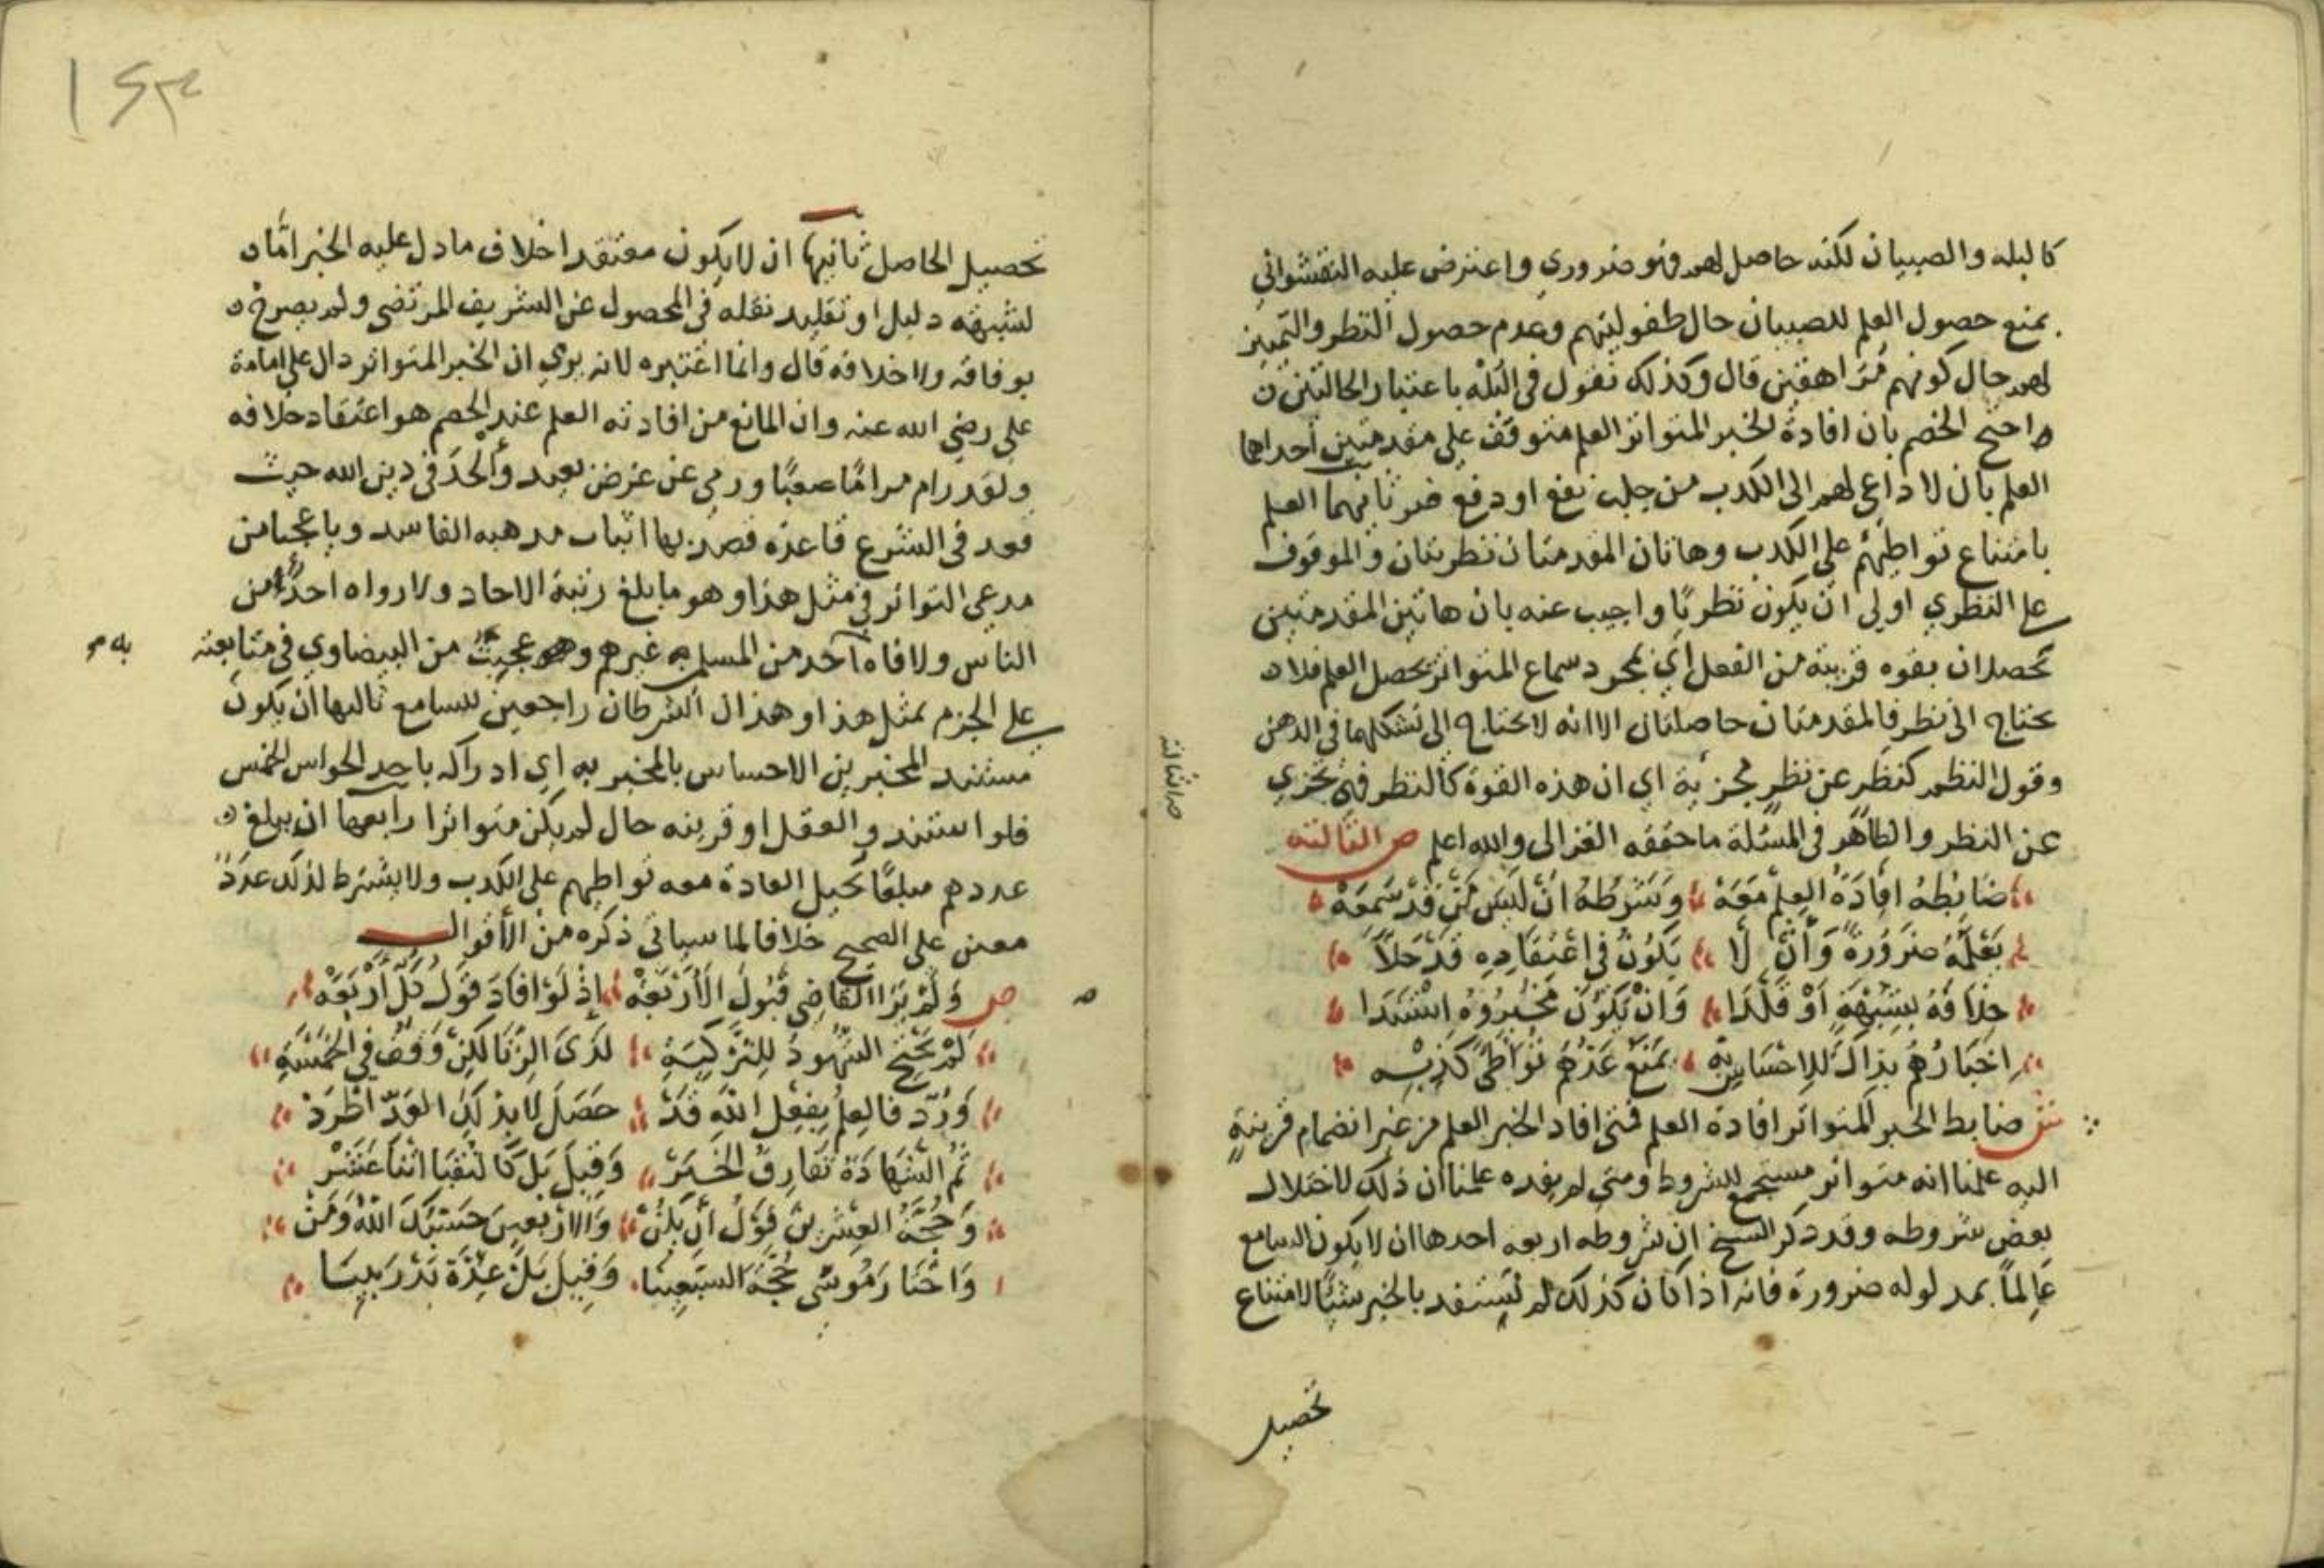 كالبله والصبيان لكنه حاصل لهم فهو ضروري واعترض عليه النقشواني
بمنع حصول العلم للصبيان حال طفوليتهم وعدم حصول النظر والتمييز
لهم حال كونهم مراهقين قال وكذلك نقول في البله باعتبار الحالتين
واحتج الخصم بان افادة الخبر المتواتر العلم متوقف على مقدمتين احداهما
العلم بان لا داعي لهم الى الكذب من جلب نفع او دفع ضر ثانيهما العلم
بامتناع تواطئهم على الكذب وهاتان المقدمتان نظريتان والموقوف
على النظري اولى ان يكون نظريا واجيب عنه بان هاتين المقدمتين
تحصلان بقوه قريبة من الفعل اي بمجرد سماع المتواتر يحصل العلم فلا
يحتاج الى نظر فالمقدمتان حاصلتان الا انه لا يحتاج الى تشكلهما في الذهن
وقول النظم كنظر عن نظر مجزية اي ان هذه القوة كالنظر فهي تجزي
عن النظر والظاهر في المسئلة ما حققه الغزالي والله اعلم ص الثالثه
ضَابِطُهُ اِفَادَةُ العِلْمِ مَعَهْ وَشَرْطُهُ اَنْ لَيْسَ مَنْ قَدْ سَمِعَهْ
يَعْلَمُهُ ضَرُورَةً وَأَنْ لَا يَكُونَ فِي اعْتِقَادِهِ قَدْ حَلَّا
خِلَافَهُ بِشُبْهَةٍ اَوْ قَلَّدَا وَانْ يَكُونَ مُخْبِرُوهُ اسْتَنَدَا
اِخْبَارُهُمْ بِذَاكَ لِلِاحْسَاسِ بِهْ يَمْنَعُ عَدُّهُمْ تَوَاطِي كَذِبِهْ
ش ضابط الخبر المتواتر افادة العلم فمتى افاد الخبر العلم من غير انضمام قرينة
اليه علمنا انه متواتر مستجمع للشروط ومتى لم يفده علمنا ان ذلك لاختلال
بعض شروطه وقد ذكر الشيخ ان شروطه اربعه احدها ان لا يكون السامع
عالماً بمدلوله ضرورة فانه اذا كان كذلك لم يستفد بالخبر شيئا لامتناع
تحصيل
تحصيل الحاصل ثانيها ان لا يكون معتقدا خلاف ما دل عليه الخبر اما
لشبهه دليل او تقليد نقله في المحصول عن الشريف المرتضى ولم يصرح
بوفاقه ولا خلافه قال وانما اعتبره لانه يرى ان الخبر المتواتر دال على امامة
علي رضي الله عنه وان المانع من افادته العلم عند الخصم هو اعتقاد خلافه
ولقد رام مراما صعبا ورمى عن غرض بعيد وألحد في دين الله حيث
قعد في الشرع قاعدة قصد بها اثبات مذهبه الفاسد ويا عجبا من
مدعي التواتر في مثل هذا وهو ما بلغ رتبة الاحاد ولا رواه احد من
الناس ولا فاه به احد من المسلمين غيرهم وهو عجيب من البيضاوي في متابعته
على الجزم بمثل هذا وهذان الشرطان راجعين للسامع ثالثها ان يكون
مستند المخبرين الاحساس بالمخبر به اي ادراكه باحد الحواس الخمس
فلو استند والعقل او قرينه حال لم يكن متواترا رابعها ان يبلغ
عددهم مبلغا تحيل العادة معه تواطيهم على الكذب ولا يشترط لذلك عدد
معين على الصحيح خلافا لما سياتي ذكره من الأقوال
ص وَلَمْ يَرَ القَاضِي قَبُولَ الاَرْبَعَهْ اِذْ لَوْ افَادَ قَوْلُ كُلِّ أَرْبَعَهْ
لَمْ يَحْتَجِ الشُّهُودُ لِلتَّزْكِيَةِ لَدَى الزِّنَا لَكِنْ وَقَفْ فِي الخَمْسَةِ
وَرُدَّ فَالعِلْمُ بِفِعْلِ اللهِ قَدْ حَصَلَ لَا بِذَلِكَ العَدِّ اطَّرَدْ
ثُمَّ الشَّهَادَة تُفَارِقُ الخَبَرْ وَقِيلَ بَلْ كَالنُّقَبَا اثْنَا عَشَرْ
وَحُجَّةُ العِشْرِينَ قَوْلُ اَنْ يَكُنْ وَالاَرْبَعِينَ حَسْبُكَ اللهُ وَمَنْ
وَاخْتَارَ مُوسَى حُجَّةُ السَّبْعِينَا وَقِيلَ بَلْ عِدَّة بَدْرَ